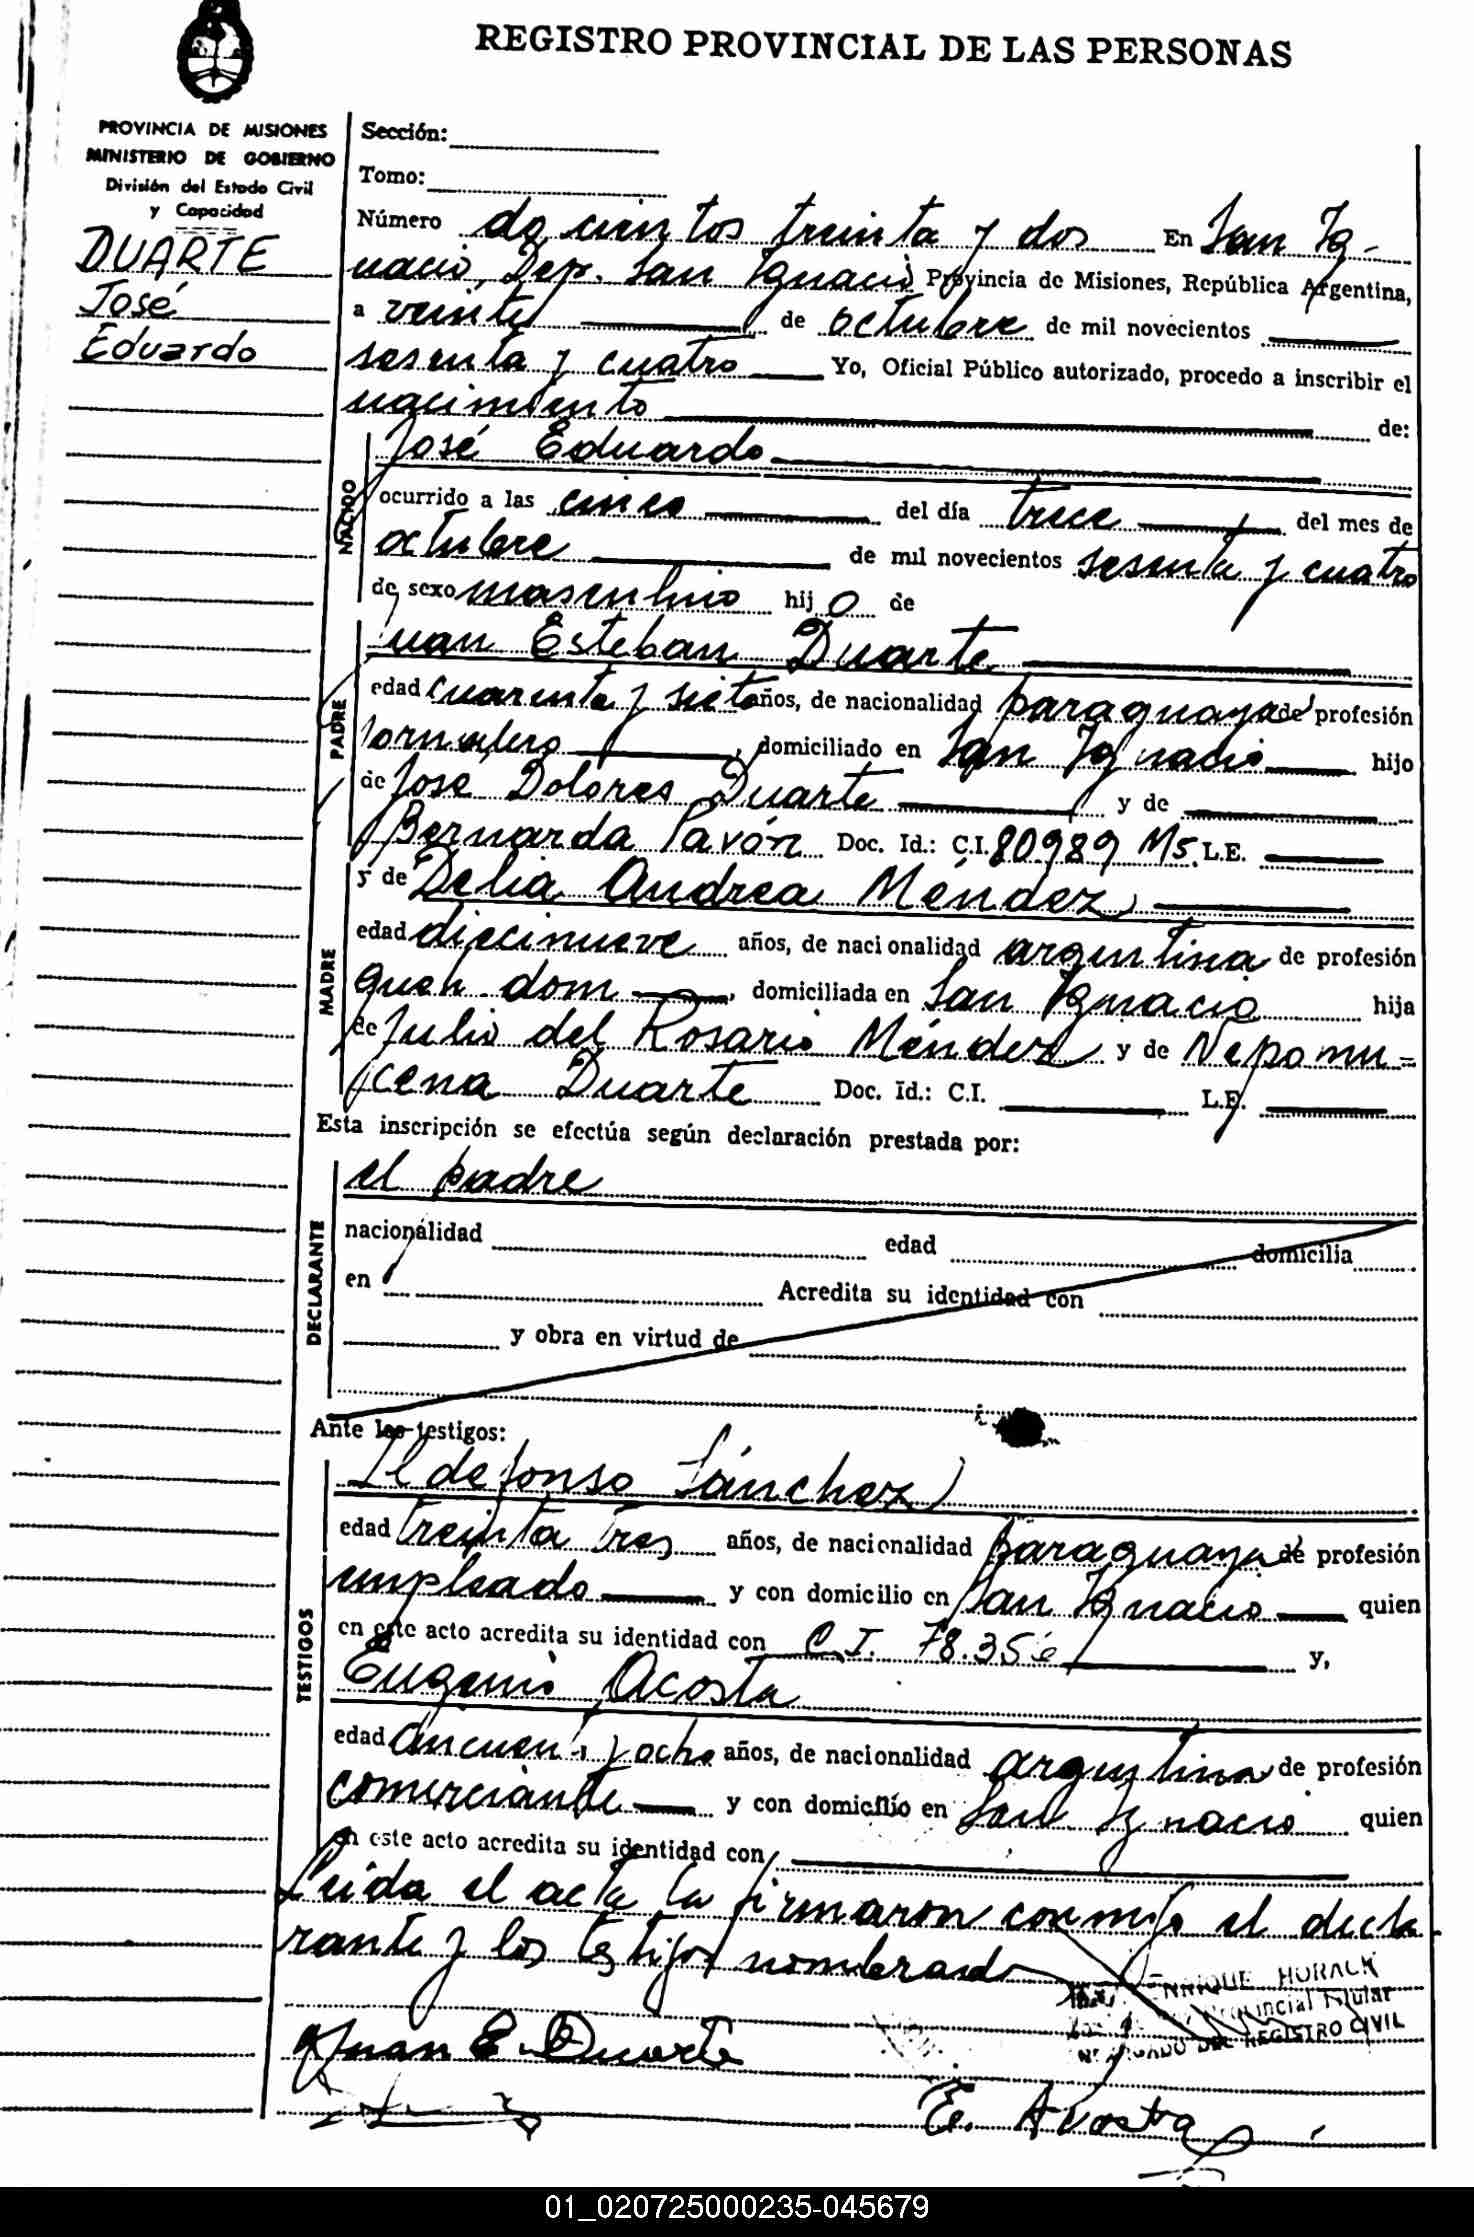 REGISTRO PROVINCIAL DE LAS PERSONAS
PROVINCIA DE MISIONES
MINISTERIO DE GOBIERNO
División del Estado Civil
y Capacidad
DUARTE
José
Eduardo
Sección:
Tomo:
Número docientos treinta y dos En San Ig-
nacio, Dep. San Ignacio Provincia de Misiones, República Argentina,
a veinte de octubre de mil novecientos
sesenta y cuatro Yo, Oficial Público autorizado, procedo a inscribir el
nacimiento de:
NACIDO
José Eduardo
ocurrido a las cinco del día trece del mes de
octubre de mil novecientos sesenta y cuatro
de sexo masculino hijo de
PADRE
Juan Esteban Duarte
edad cuarenta y siete años, de nacionalidad paraguaya de profesión
jornalero, domiciliado en San Ignacio hijo
de José Dolores Duarte y de
Bernarda Pavón Doc. Id.: C.I. 80989 Ms. L.E.
MADRE
y de Delia Andrea Méndez
edad diecinueve años, de nacionalidad argentina de profesión
queh. dom, domiciliada en San Ignacio hija
de Julio del Rosario Méndez y de Nepomu-
cena Duarte Doc. Id.: C.I. L.E.
Esta inscripción se efectúa según declaración prestada por:
DECLARANTE
el padre
nacionalidad edad domicilia
en Acredita su identidad con
y obra en virtud de
Ante los testigos:
TESTIGOS
Ildefonso Sánchez
edad treinta tres años, de nacionalidad paraguaya de profesión
empleado y con domicilio en San Ignacio quien
en este acto acredita su identidad con C.I. 78.356 y,
Eugenio Acosta
edad cincuenta y ocho años, de nacionalidad argentina de profesión
comerciante y con domicilio en San Ignacio quien
en este acto acredita su identidad con
Leída el acta la firmaron conmigo el decla
rante y los testigos nombrados
ENRIQUE HORACK
Provincial Titular
REGISTRO CIVIL
Juan E. Duarte
E. Acosta
01_020725000235-045679